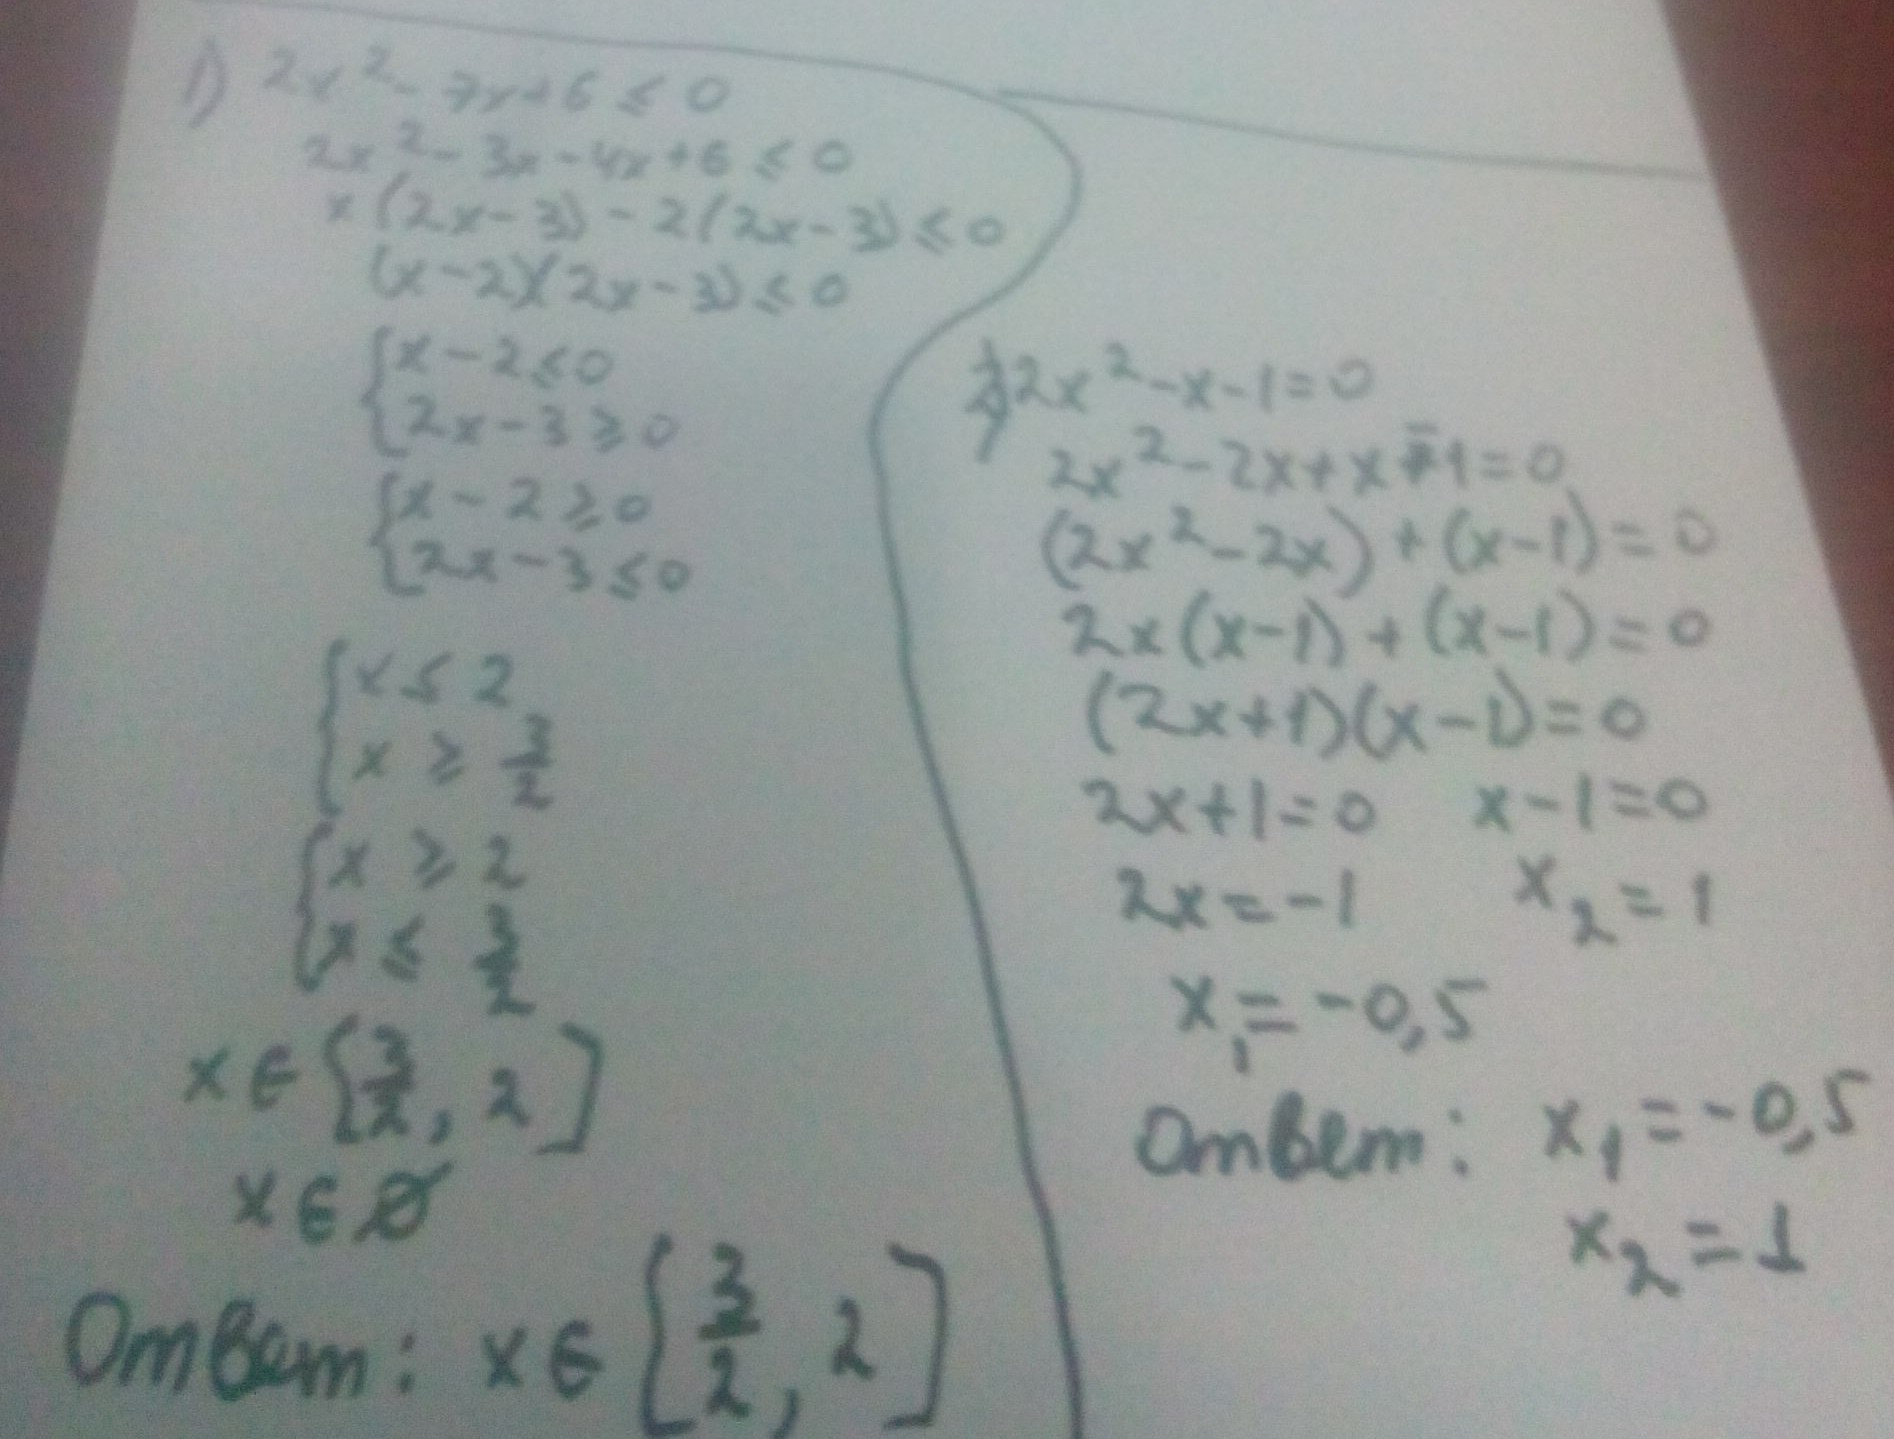 1) 2x² - 7x + 6 ≤ 0
2x² - 3x - 4x + 6 ≤ 0
x (2x - 3) - 2(2x - 3) ≤ 0
(x - 2)(2x - 3) ≤ 0
{x - 2 ≤ 0
{2x - 3 ≥ 0
{x - 2 ≥ 0
{2x - 3 ≤ 0
{x ≤ 2
{x ≥ 3/2
{x ≥ 2
{x ≤ 3/2
x ∈ [3/2, 2]
x ∈ ∅
Ответ: x ∈ [3/2, 2]
2) 2x² - x - 1 = 0
2x² - 2x + x - 1 = 0
(2x² - 2x) + (x - 1) = 0
2x (x - 1) + (x - 1) = 0
(2x + 1)(x - 1) = 0
2x + 1 = 0 x - 1 = 0
2x = -1 x₂ = 1
x₁ = -0,5
Ответ: x₁ = -0,5
x₂ = 1